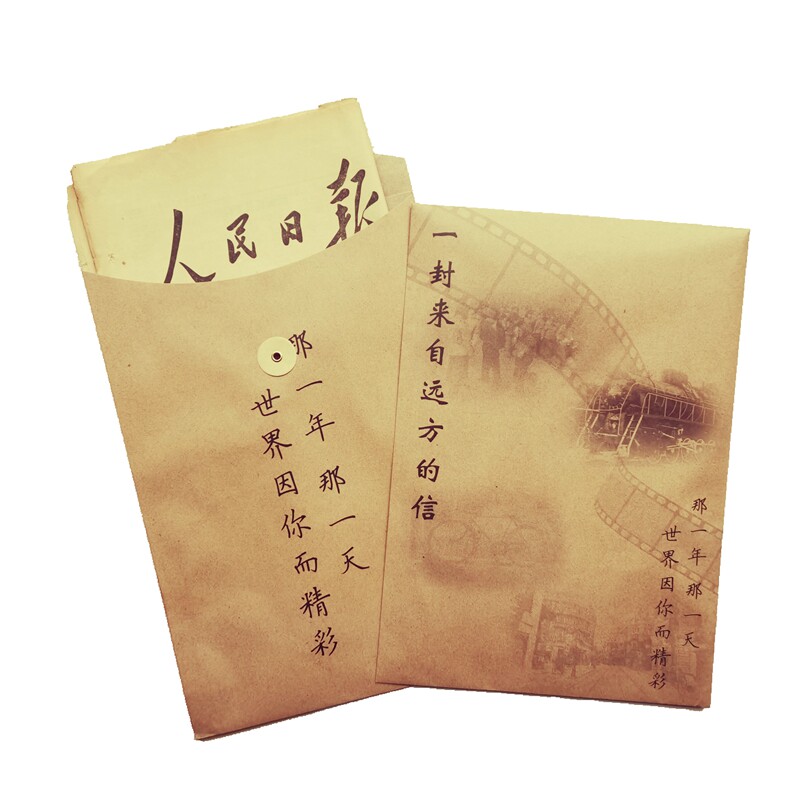 人民日报
那一年 那一天
世界因你而精彩
一封来自远方的信
那一年 那一天
世界因你而精彩